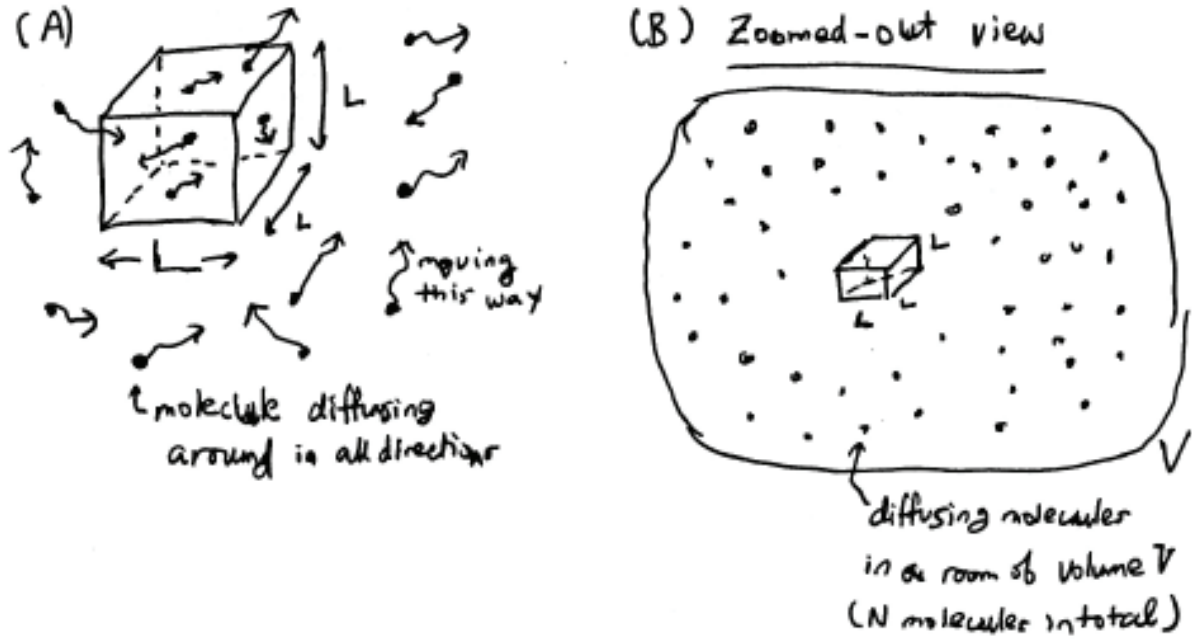 (A)
L
L
L
moving
this way
molecule diffusing
around in all directions
(B) Zoomed-out view
L
L
L
V
diffusing molecules
in a room of volume V
(N molecules in total)